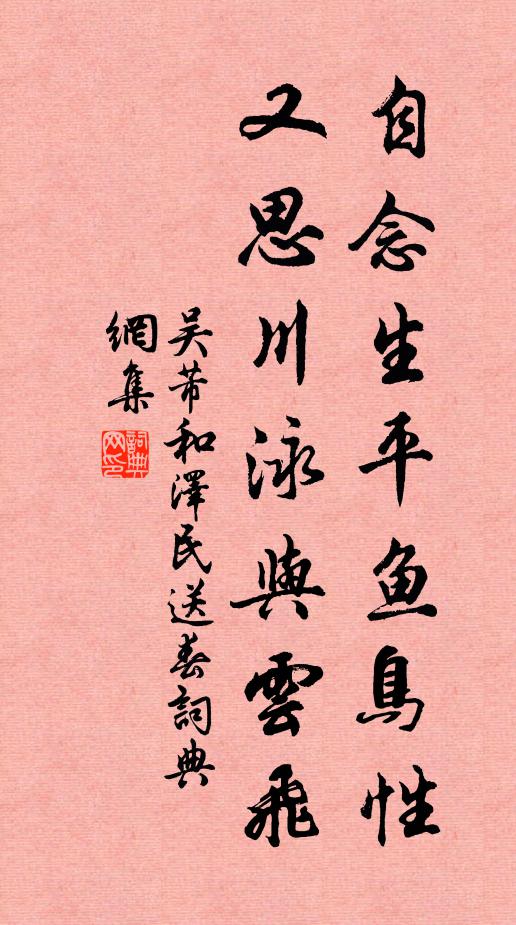 自念生平鱼鳥性
又思川泳與雲飛
吴芾和澤民送春詞典
網集
詞典
网印